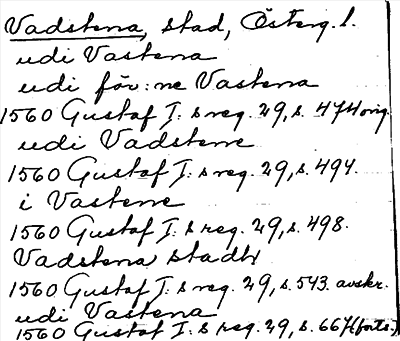 Vadstena, stad, Österg. l.
udi Vastena
udi för:ne Vastena
1560 Gustaf I:s reg. 29, s. 474 orig.
udi Vadstene
1560 Gustaf I:s reg. 29, s. 494.
i Vastene
1560 Gustaf I:s reg. 29, s. 498.
Vadstena stadh
1560 Gustaf I:s reg. 29, s. 543. avskr.
udi Vastena
1560 Gustaf I:s reg. 29, s. 667 (forts.)